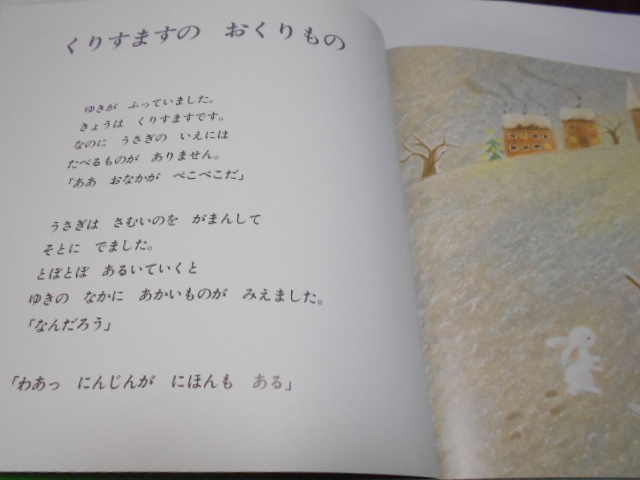 くりすますの　おくりもの
ゆきが　ふっていました。
きょうは　くりすますです。
なのに　うさぎの　いえには
たべるものが　ありません。
「ああ　おなかが　ぺこぺこだ」
うさぎは　さむいのを　がまんして
そとに　でました。
とぼとぼ　あるいていくと
ゆきの　なかに　あかいものが　みえました。
「なんだろう」
「わあっ　にんじんが　にほんも　ある」